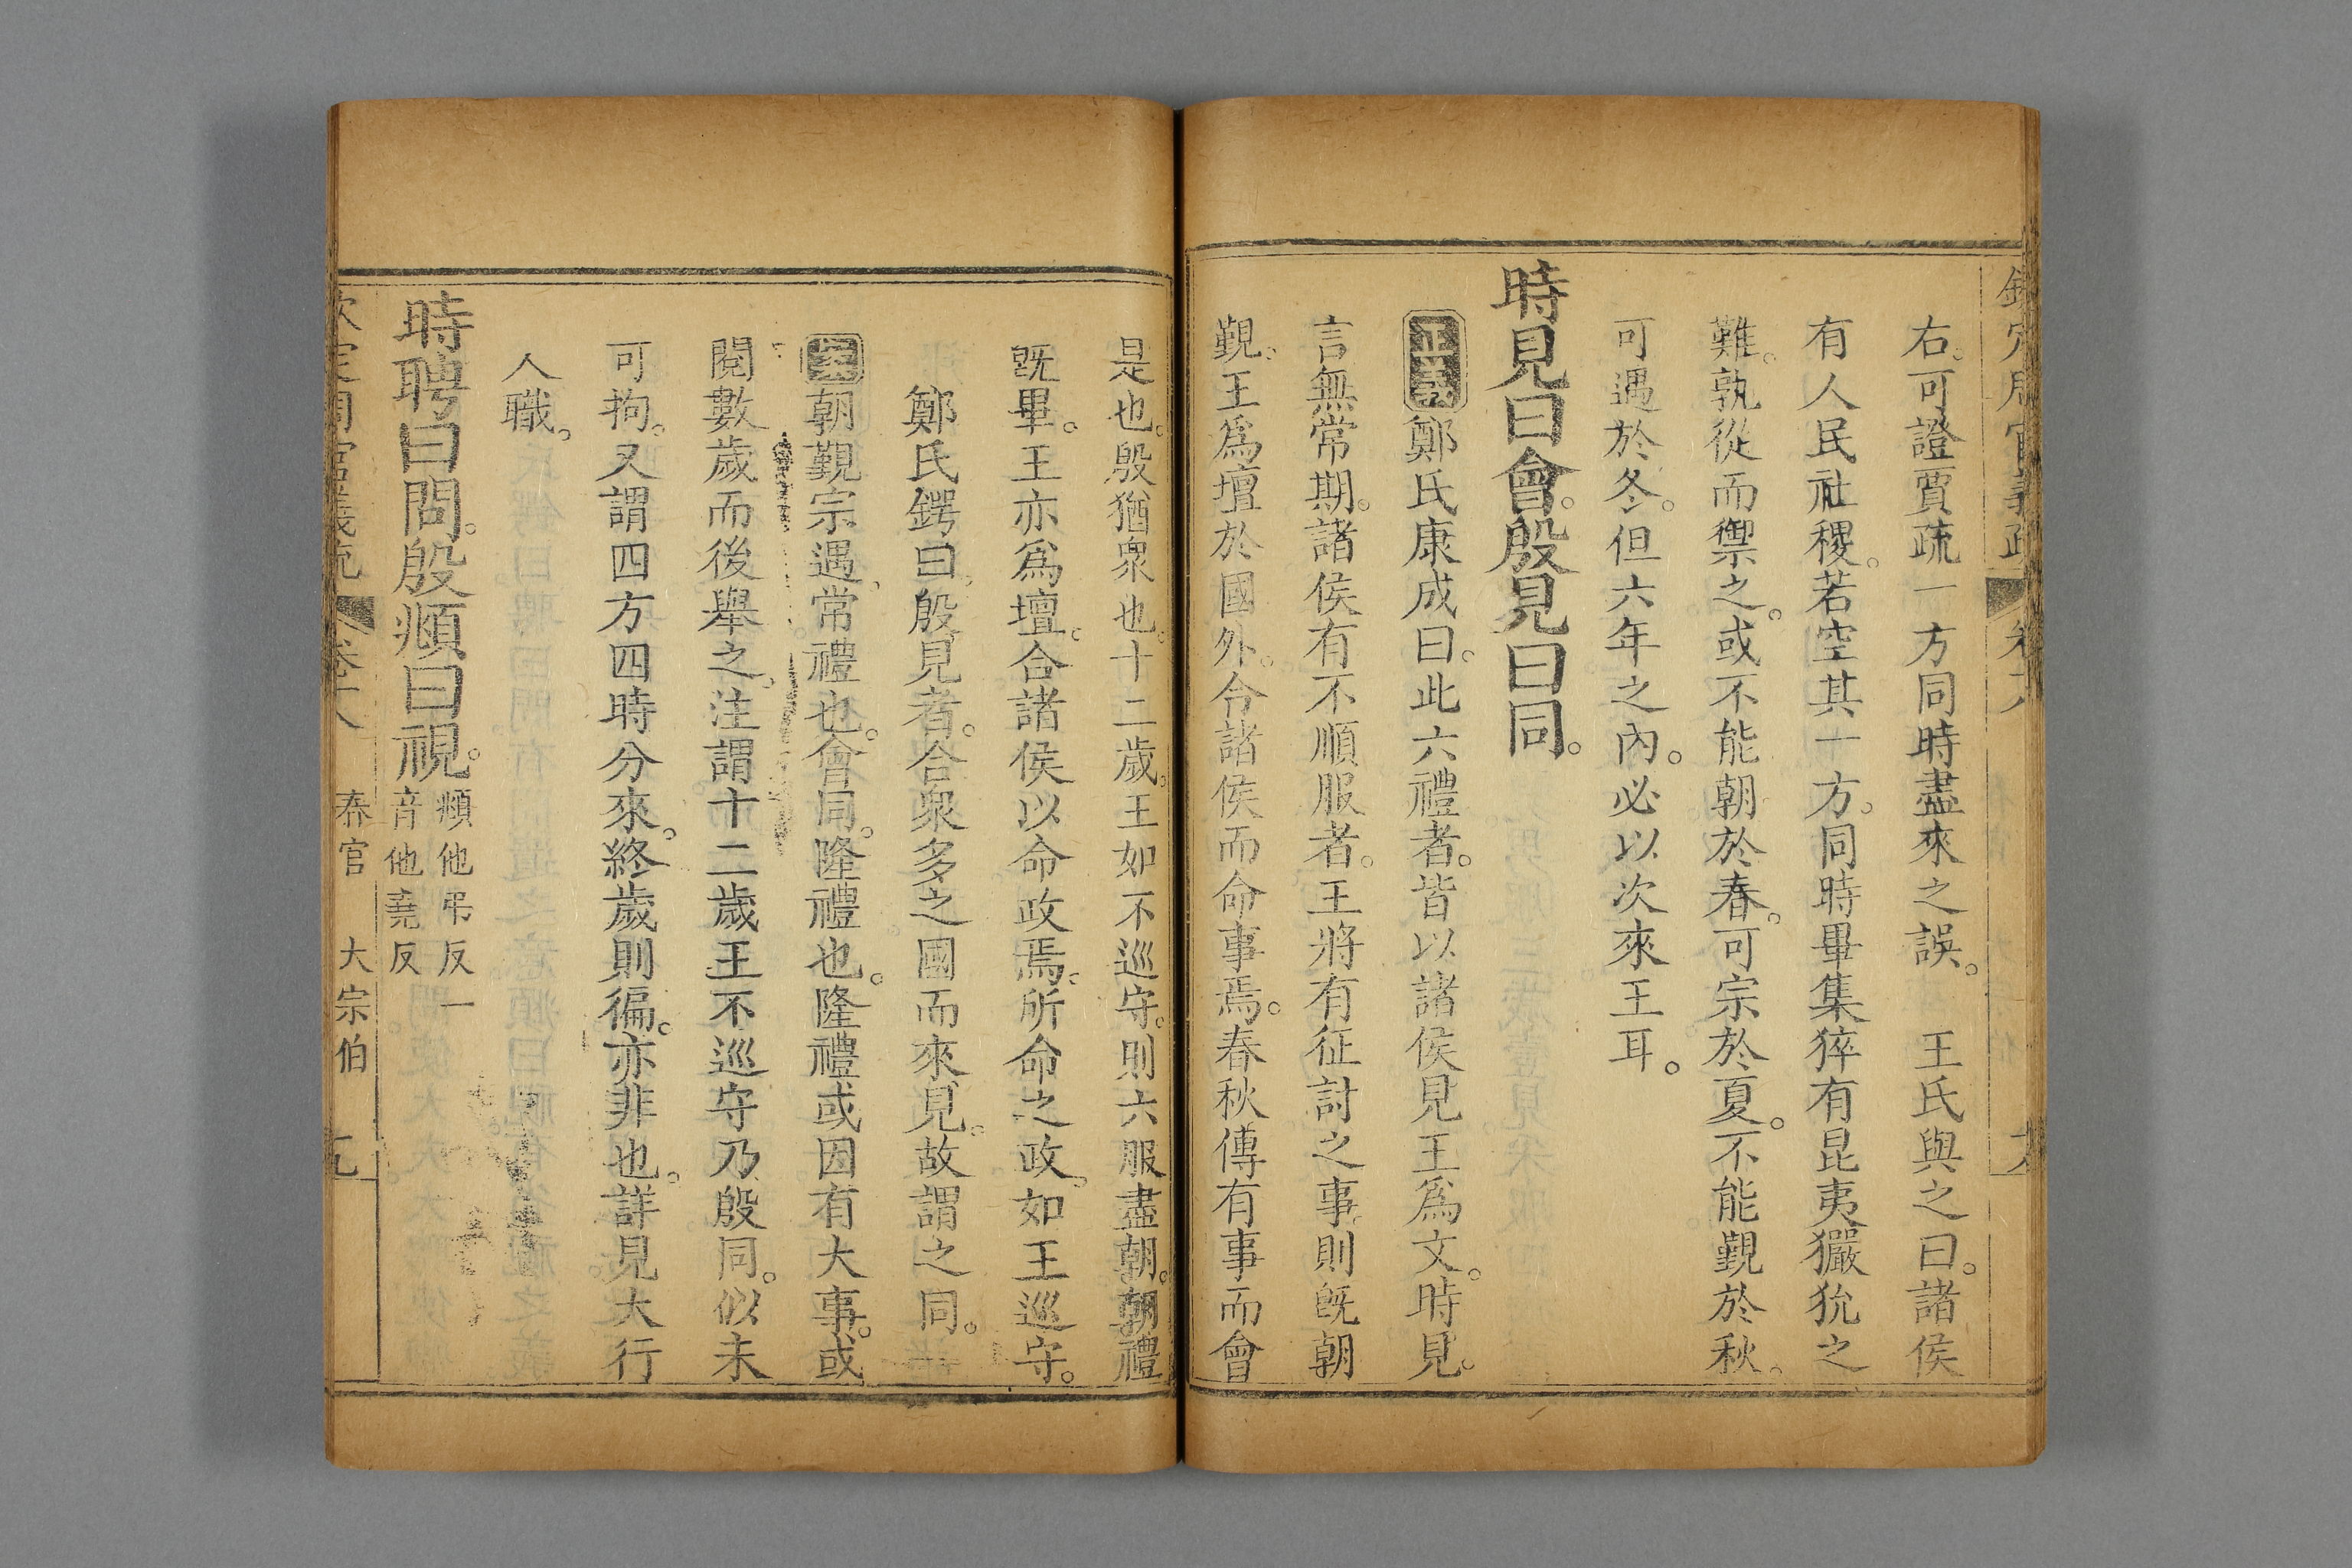 右。可證賈疏一方同時盡來之誤。　王氏與之曰。諸侯
有人民社稷。若空其一方。同時畢集猝有昆夷玁狁之
難。孰從而禦之。或不能朝於春。可宗於夏。不能覲於秋。
可遇於冬。但六年之內。必以次來王耳。
時見曰會。殷見曰同。
正義鄭氏康成曰。此六禮者。皆以諸侯見王爲文。時見。
言無常期。諸侯有不順服者。王將有征討之事。則旣朝
覲。王爲壇於國外。合諸侯而命事焉。春秋傳有事而會
是也。殷猶衆也。十二歲。王如不巡守。則六服盡朝。朝禮
旣畢。王亦爲壇。合諸侯以命政焉。所命之政。如王巡守。
鄭氏鍔曰。殷見者。合衆多之國而來見。故謂之同。
案朝覲宗遇。常禮也。會同。隆禮也。隆禮或因有大事。或
閱數歲而後舉之。注謂十二歲王不巡守乃殷同。似未
可拘。又謂四方四時分來。終歲則徧。亦非也。詳見大行
人職。
時聘曰問。殷覜曰視。覜他弔反一
音他堯反
欽定周官義疏 卷十八 春官 大宗伯